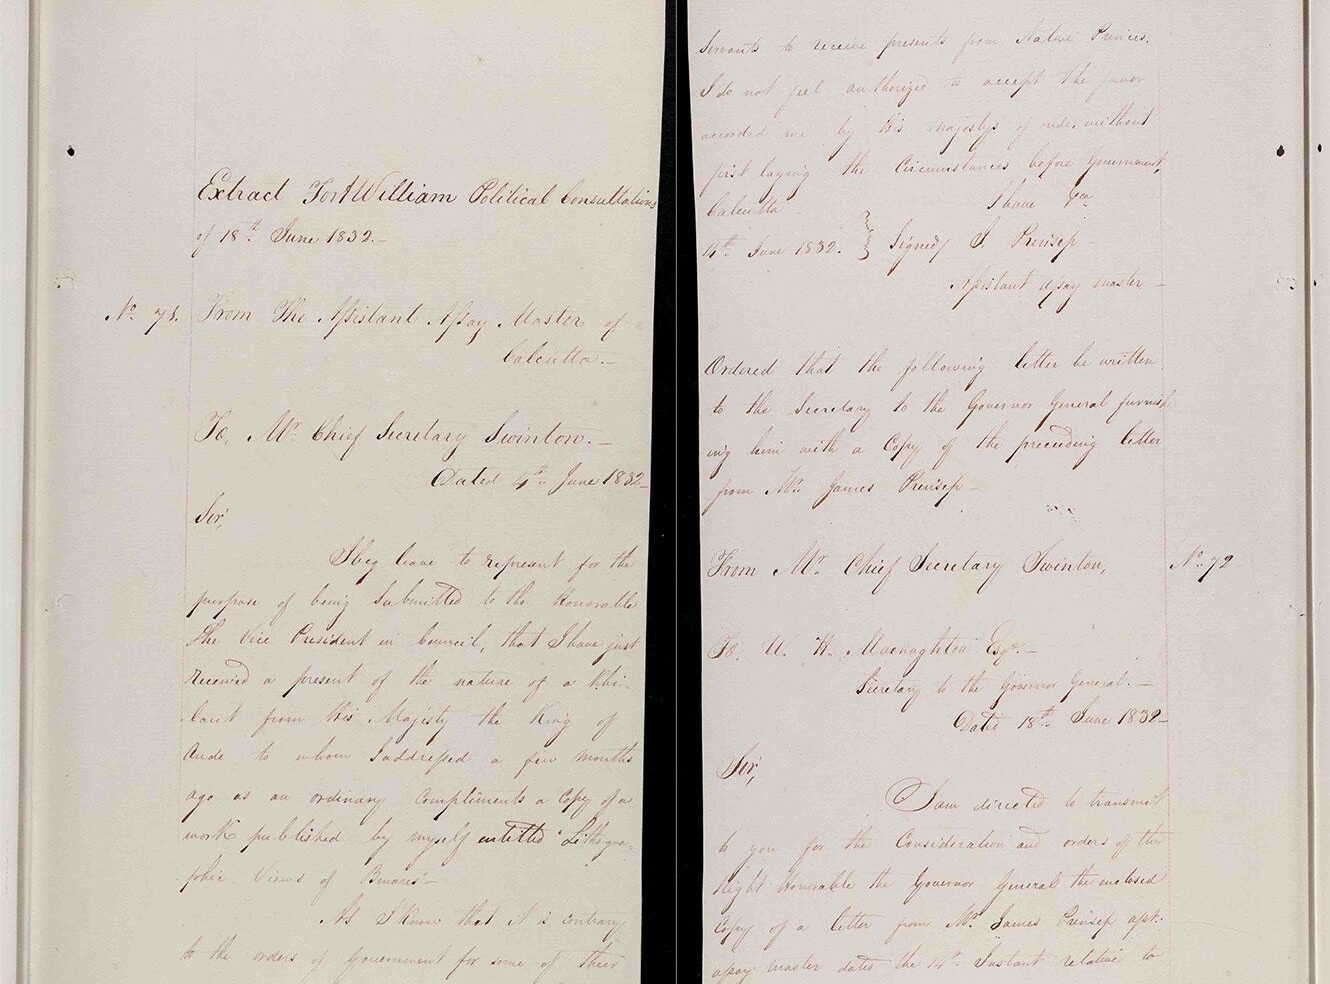 Extract Fort William Political Consultations
of 18th June 1832.-
No. 71. From The Assistant Assay Master of
Calcutta.-
To, Mr. Chief Secretary Swinton.-
Dated 4th June 1832-
Sir,
I beg leave to represent for the
purpose of being Submitted to the Honorable
the Vice President in Council, that I have just
received a present of the nature of a Khi-
laut from His Majesty the King of
Aude to whom I addressed a few months
ago as an ordinary Compliments a Copy of a
work published by myself entitled "Lithogra-
phic Views of Benares"-
As I know that it is contrary
to the orders of Government for some of their
Servants to receive presents from Native Princes.
I do not feel authorized to accept the favor
accorded me by His Majestys of Aude, without
first laying the Circumstances before Government,
I have &ca
Calcutta
14th June 1832. } Signed/ J. Prinsep-
Assistant Assay master-
Ordered that the following letter be written
to the Secretary to the Governor General furnish
ing him with a Copy of the preceeding letter
from Mr. James Prinsep-
From Mr. Chief Secretary Swinton, No. 72
To, W. H. Macnaghten Esqre.-
Secretary to the Governor General.-
Dated 18th June 1832-
Sir,
I am directed to transmit
to you for the Consideration and orders of the
Right Honorable the Governor General the enclosed
Copy of a letter from Mr. James Prinsep asst:
assay master dated the 14th Instant relative to